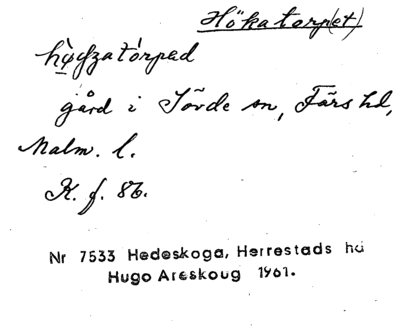 Hökatorp(et)
gård i Sövde sn, Färs hd,
Malm. l.
K. f. 86.
Nr 7533 Hedeskoga, Herrestads hd
Hugo Areskoug 1961.